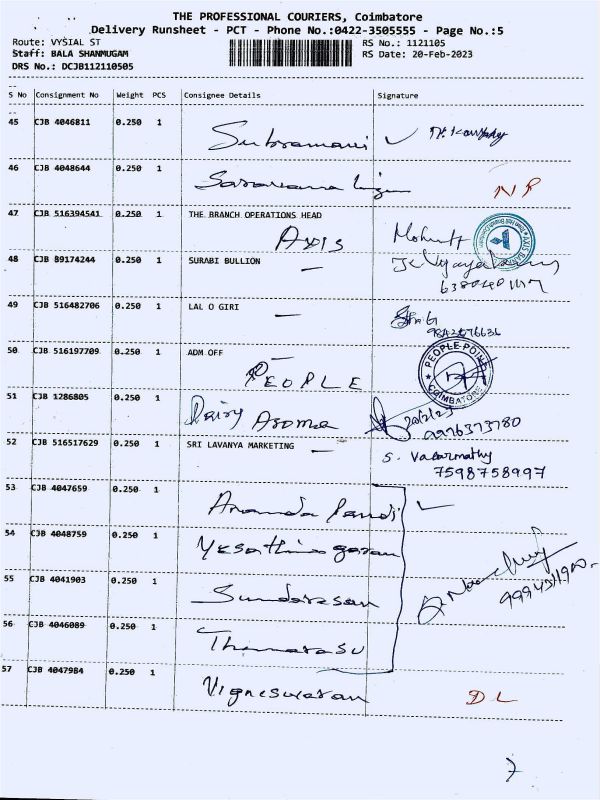 THE PROFESSIONAL COURIERS, Coimbatore
Delivery Runsheet - PCT - Phone No.:0422-3505555 - Page No.:5
Route: VYSIAL ST RS No.: 1121105
Staff: BALA SHANMUGAM RS Date: 20-Feb-2023
DRS No.: DCJB112110505
S No Consignment No Weight PCS Consignee Details Signature
45 CJB 4046811 0.250 1 Subramani
46 CJB 4048644 0.250 1 Saravana N P
47 CJB 516394541 0.250 1 THE BRANCH OPERATIONS HEAD
AXIS
48 CJB 89174244 0.250 1 SURABI BULLION
49 CJB 516482706 0.250 1 LAL O GIRI
50 CJB 516197709 0.250 1 ADM OFF
PEOPLE PEOPLE POINT COIMBATORE
51 CJB 1286805 0.250 1 Dairy Aroma 20/2/23
9976373780
52 CJB 516517629 0.250 1 SRI LAVANYA MARKETING S. Valarmathy
7598758997
53 CJB 4047659 0.250 1 Ananda Pandi
54 CJB 4048759 0.250 1
55 CJB 4041903 0.250 1 Sundaresan
56 CJB 4046089 0.250 1 Thamarasu
57 CJB 4047984 0.250 1 Vigneswaran D L